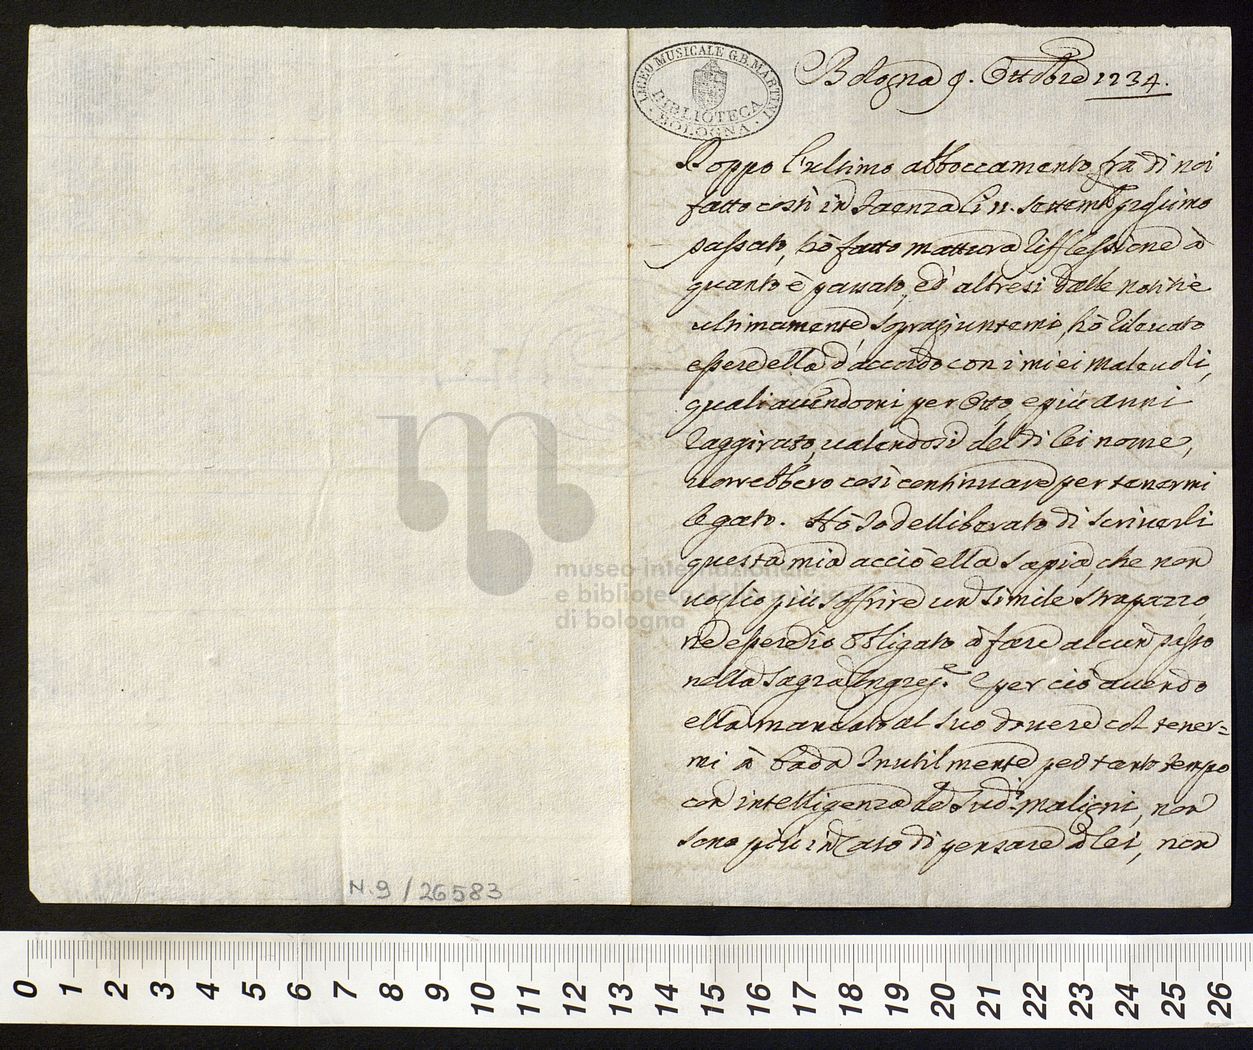 LICEO MUSICALE G.B. MARTINI
BIBLIOTECA
BOLOGNA
Bologna 9. Ottobre 1734.
Doppo l'ultimo abboccamento frà di noi
fatto costì in Faenza li 11. Settemb. prossimo
passato, hò fatto mattura riflessione à
quanto è passato, ed' altresi dalle notitie
ultimamente sopragiuntemi, hò rilevato
essere ella d'accordo con i miei malevoli,
quali avendomi per otto, e più anni
raggirato, valendosi del di lei nome,
vorrebbero così continuare per tenermi
legato. Hò Io delliberato di scriverli
questa mia acciò ella sapia, che non
voglio più soffrire un simile strapazzo
nè essere io obligato à fare alcun passo
nella sagra Ingres.e e perciò avendo
ella mancato al suo dovere col tener=
mi à bada Inutilmente per tanto tempo
con intelligenza de sud.i maligni, non
sono più in Cato di pensare à lei, non
museo internazionale
e biblioteca della musica
di bologna
N.9/26583
0 1 2 3 4 5 6 7 8 9 10 11 12 13 14 15 16 17 18 19 20 21 22 23 24 25 26